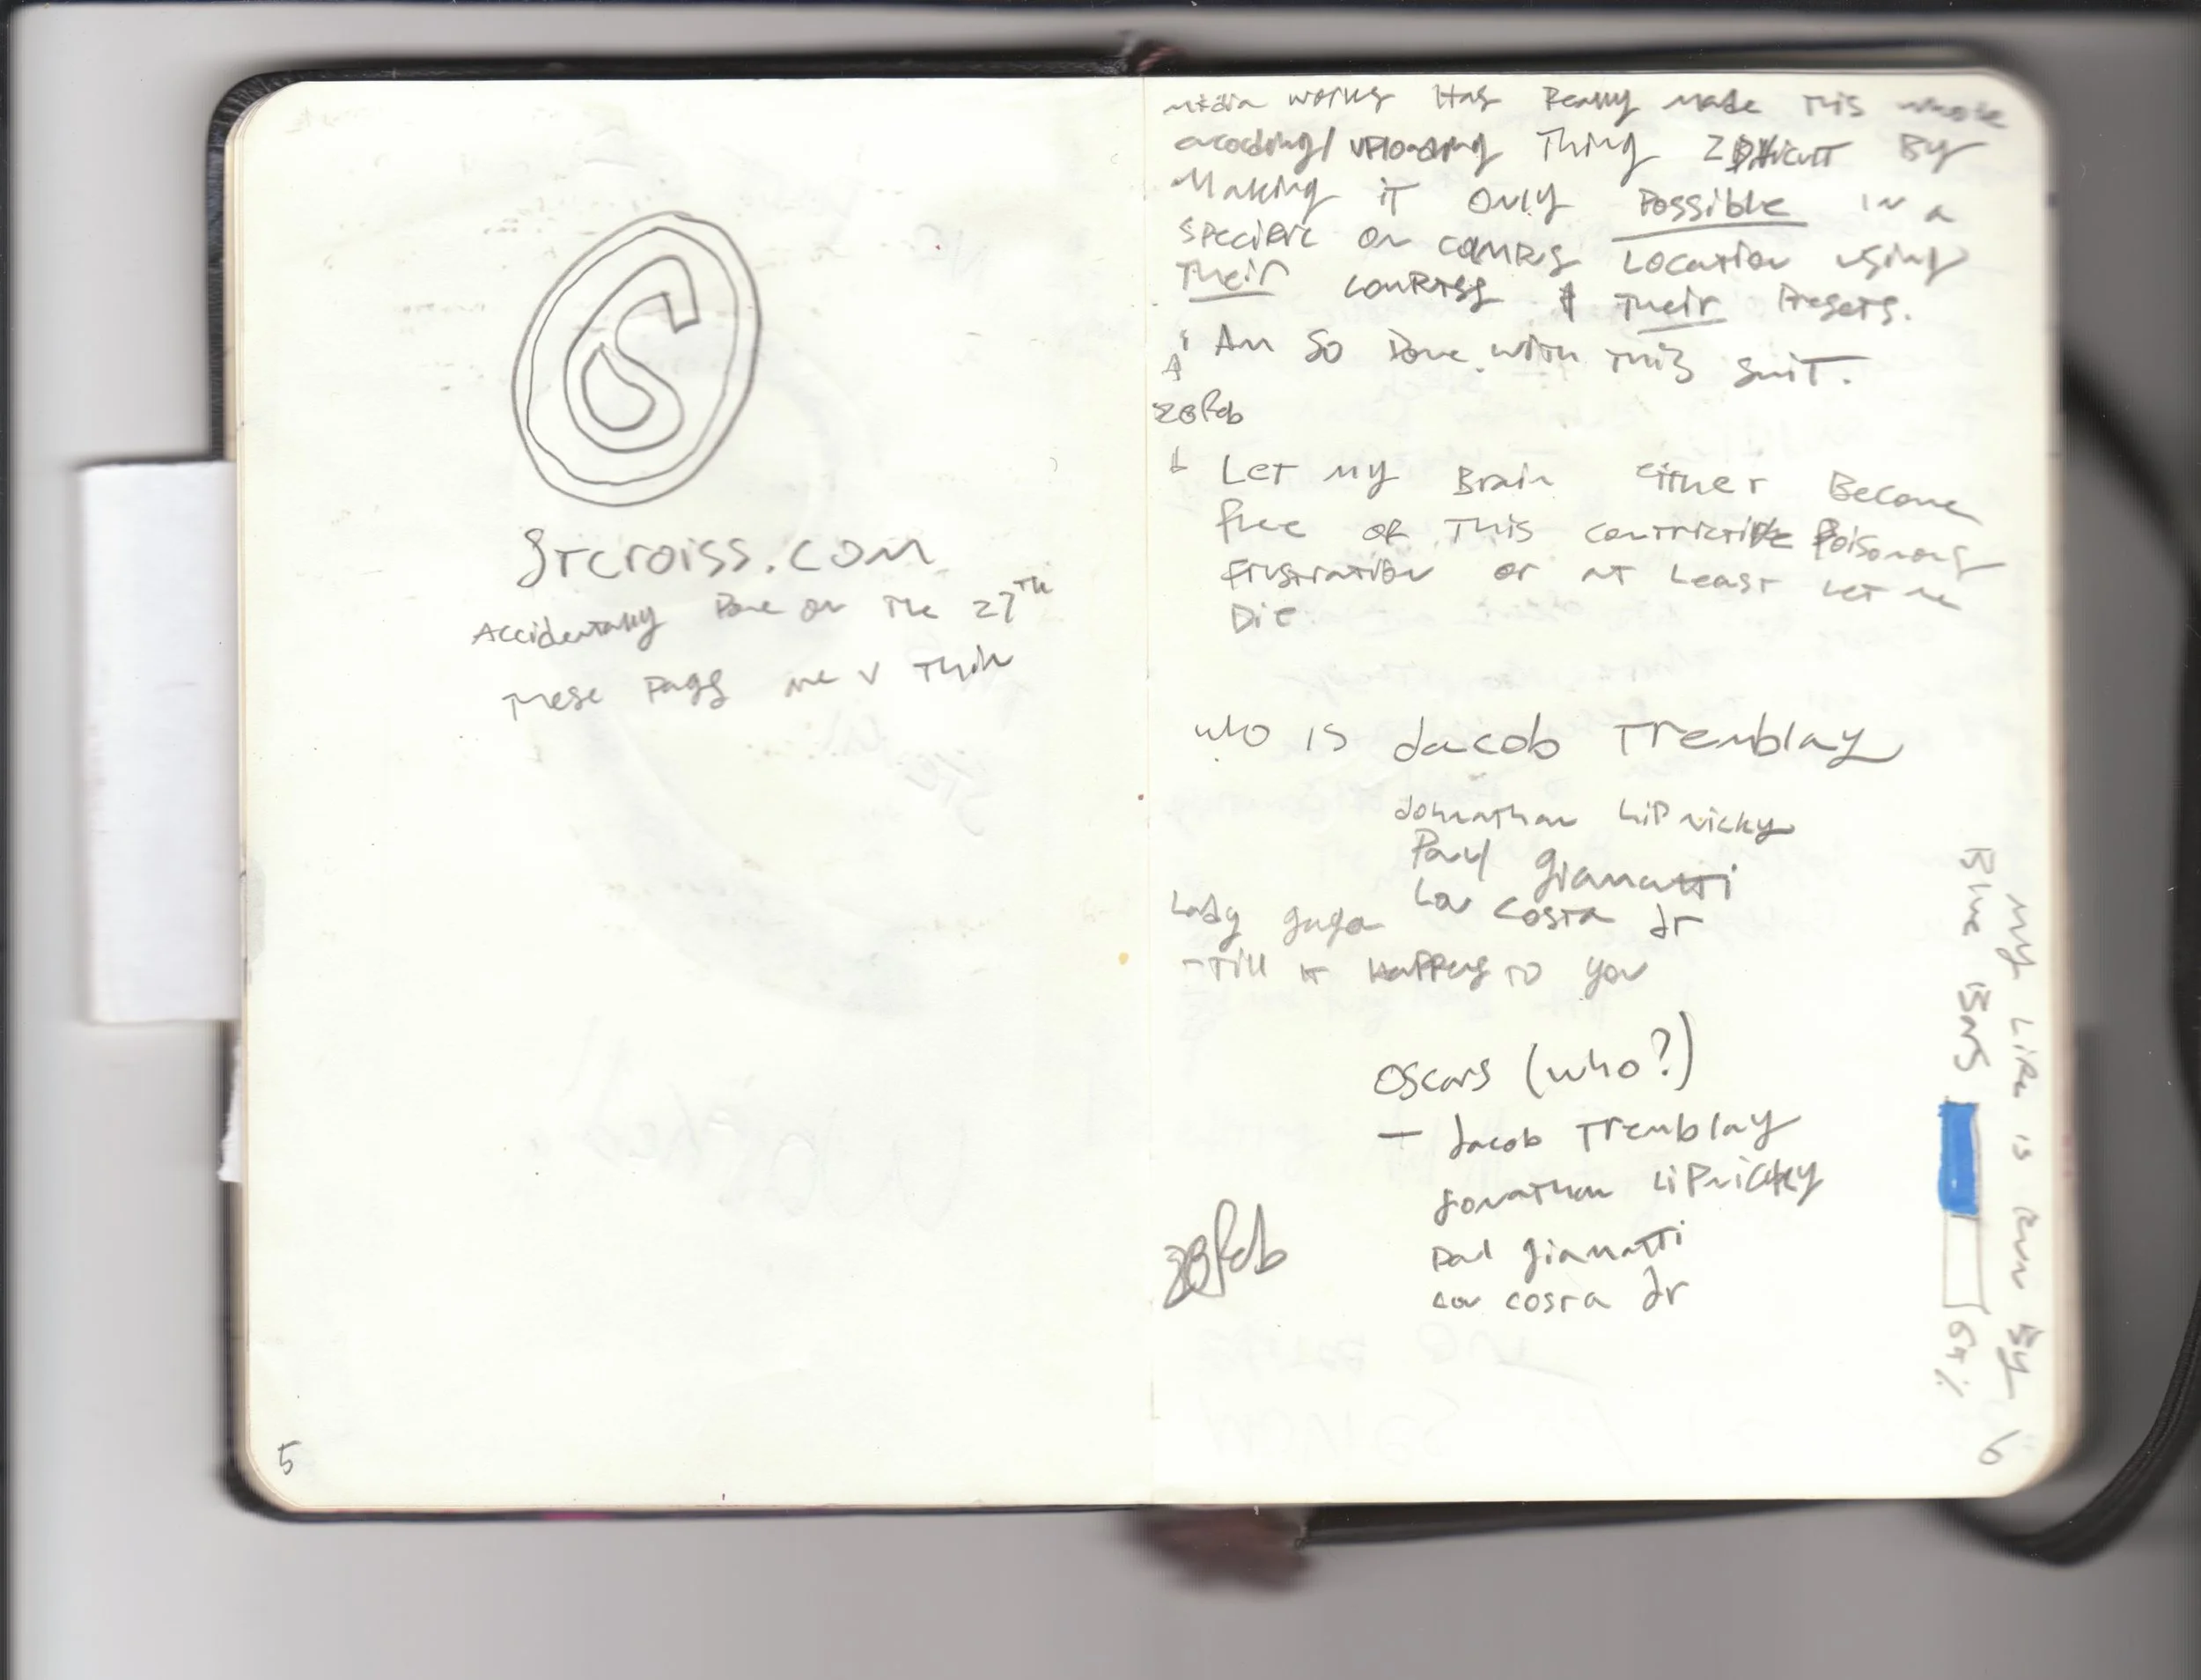 Srcroiss.com
Accidentally Done on The 27TH
These Pages are v Thin
5
media works Has Really made This whole
encoding/uploading Thing Difficult By
Making it only Possible in a
specific on campus Location using
Their computers & Their Presets.
i Am So Done with this Shit.
28 Feb
Let my Brain either Become
free of This Poisonous
frustration or at Least Let me
Die
who is Jacob Tremblay
Johnathan Lipnicky
Paul Giamatti
Lou Costa Jr
Lady gaga
Till it Happens to you
Oscars (who?)
— Jacob Tremblay
Jonathan Lipnicky
Paul Giamatti
Lou Costa Jr
28 Feb
My Life is Run By
Blue Bars
64%
6